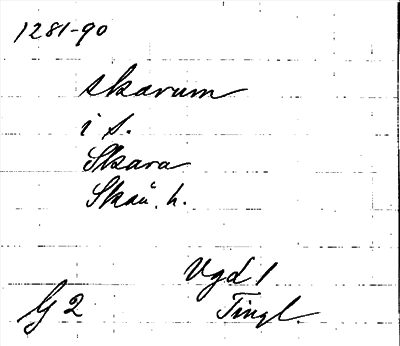 1281-90
skarum
i s.
Skara
Skån. h.
Vgd 1
G 2 Tingl.